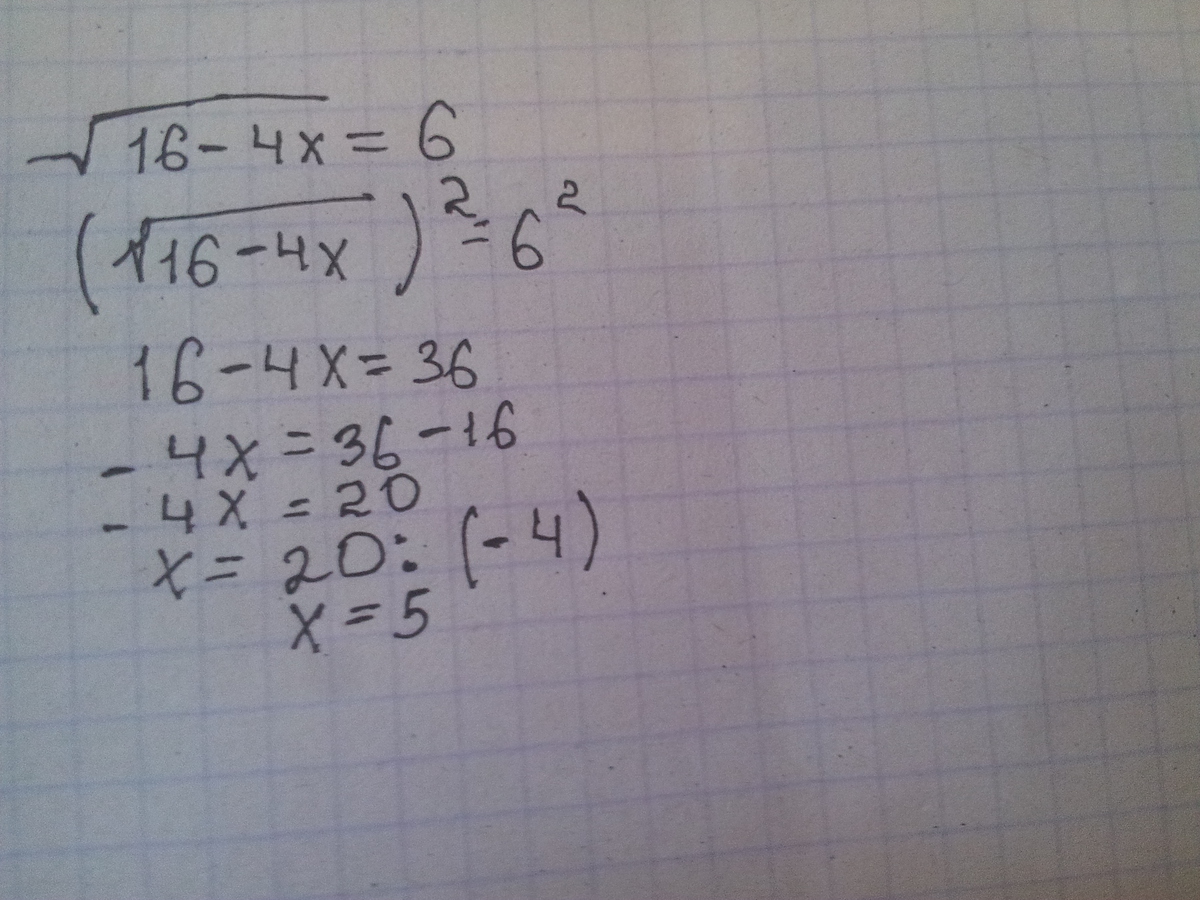 √16-4x = 6
(√16-4x)² = 6²
16-4x=36
-4x=36-16
-4x=20
x=20:(-4)
x=5